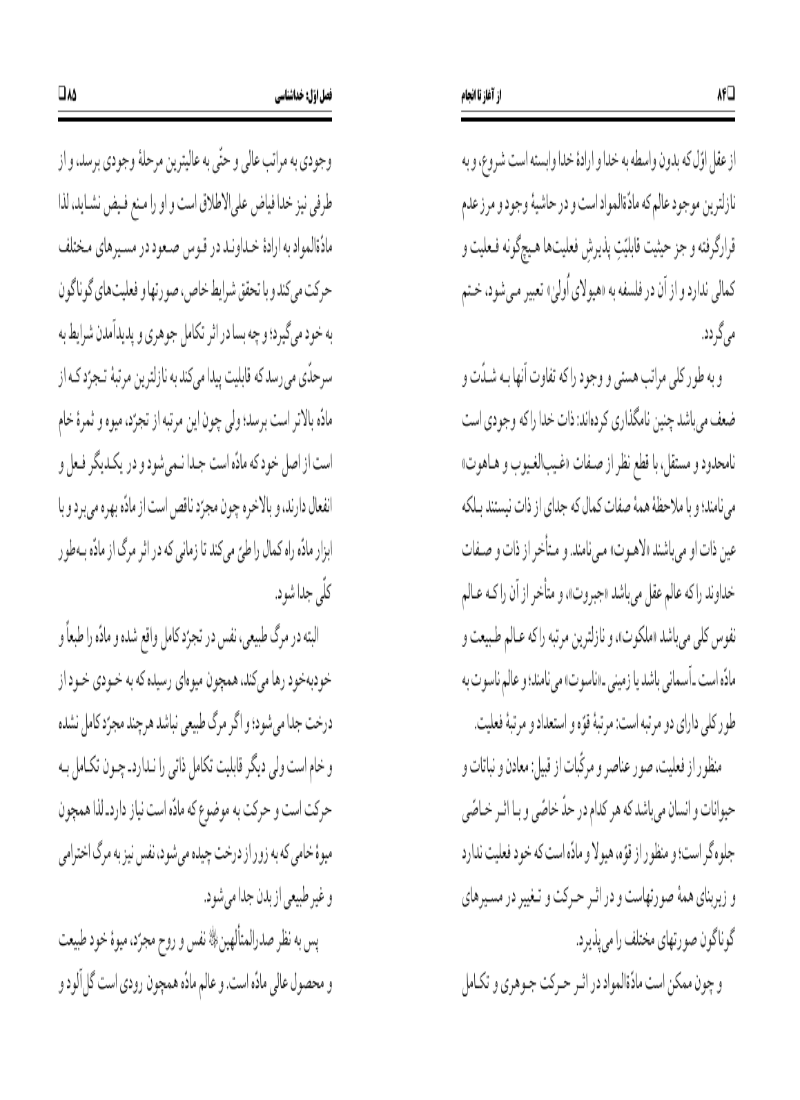 ❑۸۴ از آغاز تا انجام
از عقل اوّل که بدون واسطه به خدا و ارادهٔ خدا وابسته است شروع، و به
نازلترین موجود عالم که مادّةالمواد است و در حاشیهٔ وجود و مرز عدم
قرارگرفته و جز حیثیت قابلیّتِ پذیرشِ فعلیت‌ها هیچ‌گونه فعلیت و
کمالی ندارد و از آن در فلسفه به «هیولای اُولیٰ» تعبیر می‌شود، ختم
می‌گردد.
و به طور کلی مراتب هستی و وجود را که تفاوت آنها به شدّت و
ضعف می‌باشد چنین نامگذاری کرده‌اند: ذات خدا را که وجودی است
نامحدود و مستقل، با قطع نظر از صفات «غیب‌الغیوب و هاهوت»
می‌نامند؛ و با ملاحظهٔ همهٔ صفات کمال که جدای از ذات نیستند بلکه
عین ذات او می‌باشند «لاهوت» می‌نامند. و متأخر از ذات و صفات
خداوند را که عالم عقل می‌باشد «جبروت»، و متأخر از آن را که عالم
نفوس کلی می‌باشد «ملکوت»، و نازلترین مرتبه را که عالم طبیعت و
مادّه است ـ آسمانی باشد یا زمینی ـ «ناسوت» می‌نامند؛ و عالم ناسوت به
طور کلی دارای دو مرتبه است: مرتبهٔ قوّه و استعداد و مرتبهٔ فعلیت.
منظور از فعلیت، صور عناصر و مرکّبات از قبیل: معادن و نباتات و
حیوانات و انسان می‌باشد که هر کدام در حدّ خاصّی و با اثر خاصّی
جلوه‌گر است؛ و منظور از قوّه، هیولا و مادّه است که خود فعلیت ندارد
و زیربنای همهٔ صورتهاست و در اثر حرکت و تغییر در مسیرهای
گوناگون صورتهای مختلف را می‌پذیرد.
و چون ممکن است مادّةالمواد در اثر حرکت جوهری و تکامل
فصل اوّل: خداشناسی ۸۵❑
وجودی به مراتب عالی و حتّی به عالیترین مرحلهٔ وجودی برسد، و از
طرفی نیز خدا فیاض علی‌الاطلاق است و او را منع فیض نشاید، لذا
مادّةالمواد به ارادهٔ خداوند در قوس صعود در مسیرهای مختلف
حرکت می‌کند و با تحقق شرایط خاص، صورتها و فعلیت‌های گوناگون
به خود می‌گیرد؛ و چه بسا در اثر تکامل جوهری و پدیدآمدن شرایط به
سرحدّی می‌رسد که قابلیت پیدا می‌کند به نازلترین مرتبهٔ تجرّد که از
مادّه بالاتر است برسد؛ ولی چون این مرتبه از تجرّد، میوه و ثمرهٔ خام
است از اصل خود که مادّه است جدا نمی‌شود و در یکدیگر فعل و
انفعال دارند، و بالاخره چون مجرّد ناقص است از مادّه بهره می‌برد و با
ابزار مادّه راه کمال را طیّ می‌کند تا زمانی که در اثر مرگ از مادّه به‌طور
کلّی جدا شود.
البته در مرگ طبیعی، نفس در تجرّد کامل واقع شده و مادّه را طبعاً و
خودبه‌خود رها می‌کند، همچون میوه‌ای رسیده که به خودی خود از
درخت جدا می‌شود؛ و اگر مرگ طبیعی نباشد هرچند مجرّد کامل نشده
و خام است ولی دیگر قابلیت تکامل ذاتی را ندارد ـ چون تکامل به
حرکت است و حرکت به موضوع که مادّه است نیاز دارد ـ لذا همچون
میوهٔ خامی که به زور از درخت چیده می‌شود، نفس نیز به مرگ اخترامی
و غیر طبیعی از بدن جدا می‌شود.
پس به نظر صدرالمتألهین؛ نفس و روح مجرّد، میوهٔ خود طبیعت
و محصول عالی مادّه است. و عالم مادّه همچون رودی است گل‌آلود و